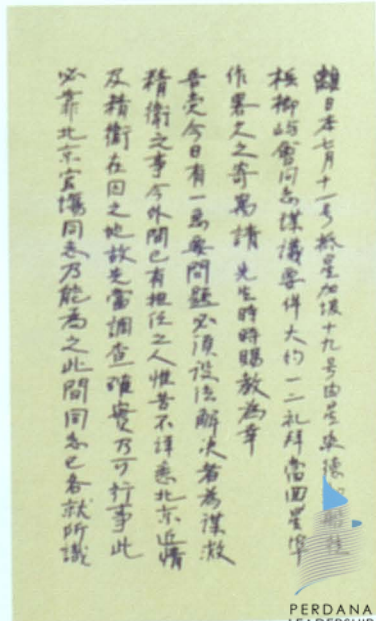 離日本七月十一号抵星加坡十九号由星乘德船往
梹榔屿會同志謀議要件大約一二礼拜當囬星埠
作畧久之寄寓請 先生時時賜教為幸
吾党今日有一急要問題必須設法解决者為謀救
精衛之事今外間已有担任之人惟苦不詳悉北京近情
及精衛在囚之地故先當調查確實乃可行事此
必靠北京官塲同志乃能為之此間同志已各就所識
PERDANA
LEADERSHIP